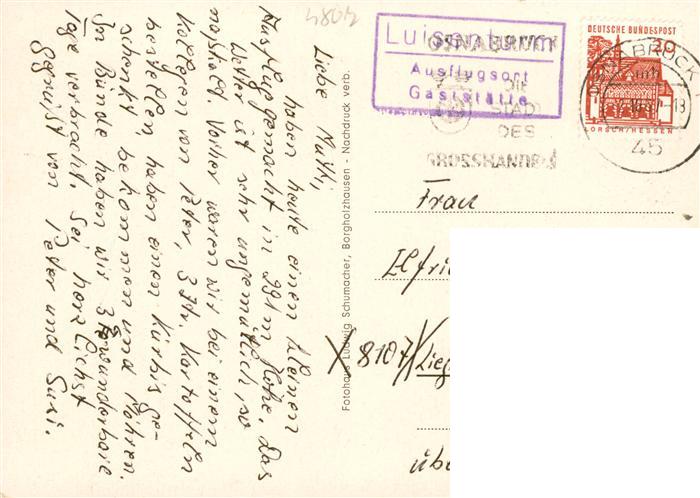 4802
Luisenturm
Ausflugsort
Gaststätte
OSNABRÜCK
DIE
STADT
DES
GROSSHANDELS
DEUTSCHE BUNDESPOST
20
LORSCH/HESSEN
OSNABRÜCK
45
Liebe Mutti,
haben heute einen kleinen
Ausflug gemacht in 291m Höhe. Das
Wetter ist sehr ungemütlich, so
naßkalt. Vorher waren wir bei einem
Kollegen von Peter, 3 Ztr. Kartoffeln
bestellen, haben einen Kürbis ge-
schenkt bekommen und Möhren.
In Bünde haben wir 3 wunderbare
Tage verbracht. Sei herzlichst
gegrüßt von Peter und Susi.
Fotohaus Ludwig Schumacher, Borgholzhausen - Nachdruck verb.
Frau
Elfrie
X 8107 / Lieg
üb